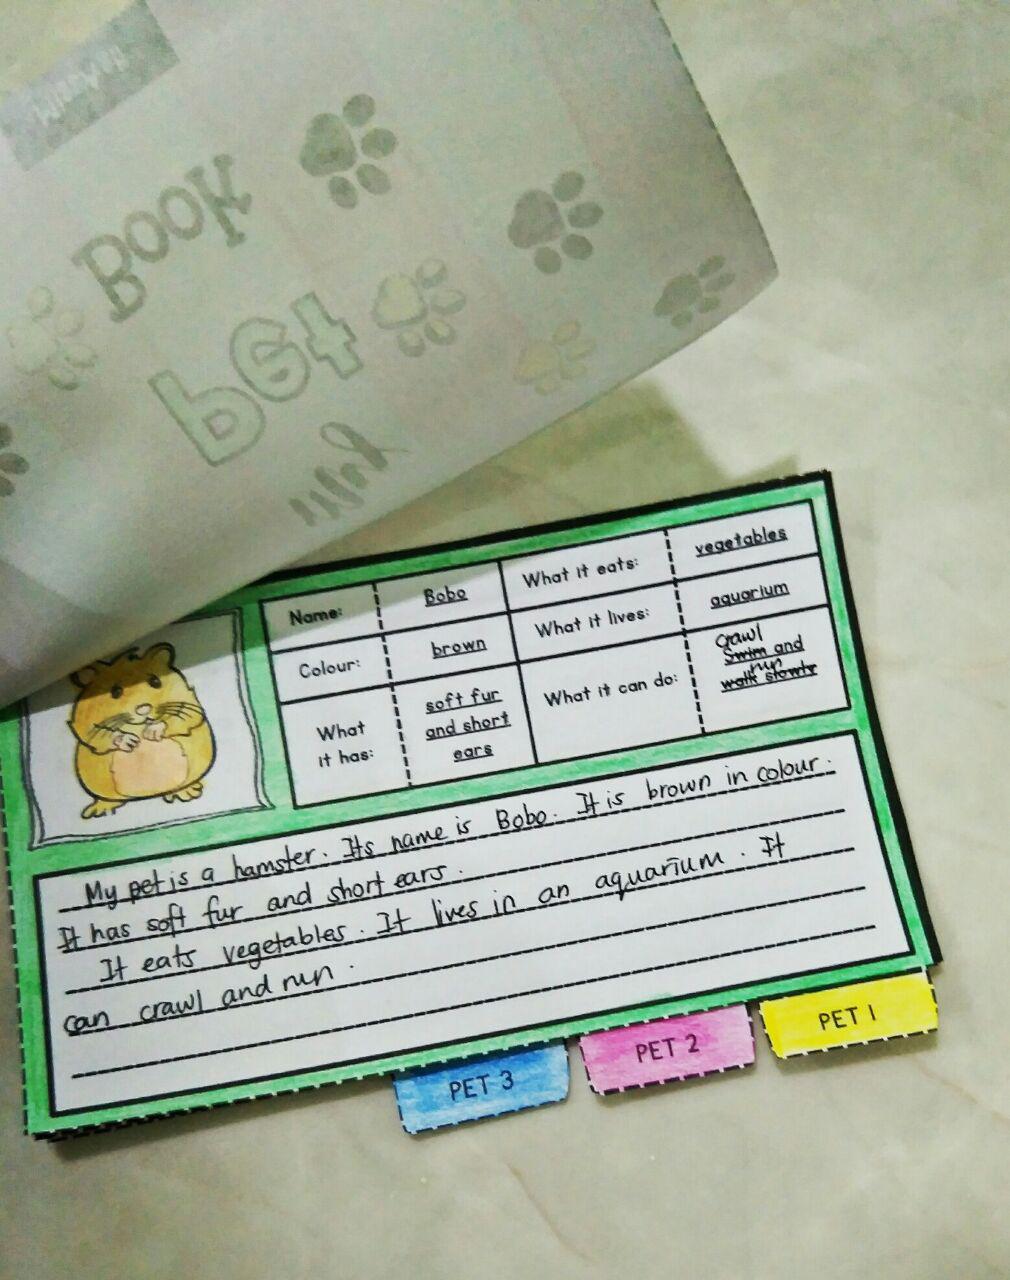 BOOK
Pet
My
Name:
Bobo
What it eats:
vegetables
Colour:
brown
What it lives:
aquarium
What it has:
soft fur
and short
ears
What it can do:
crawl
swim and
run
walk slowly
My pet is a hamster. Its name is Bobo. It is brown in colour.
It has soft fur and short ears.
It eats vegetables. It lives in an aquarium. It
can crawl and run.
PET 1
PET 2
PET 3